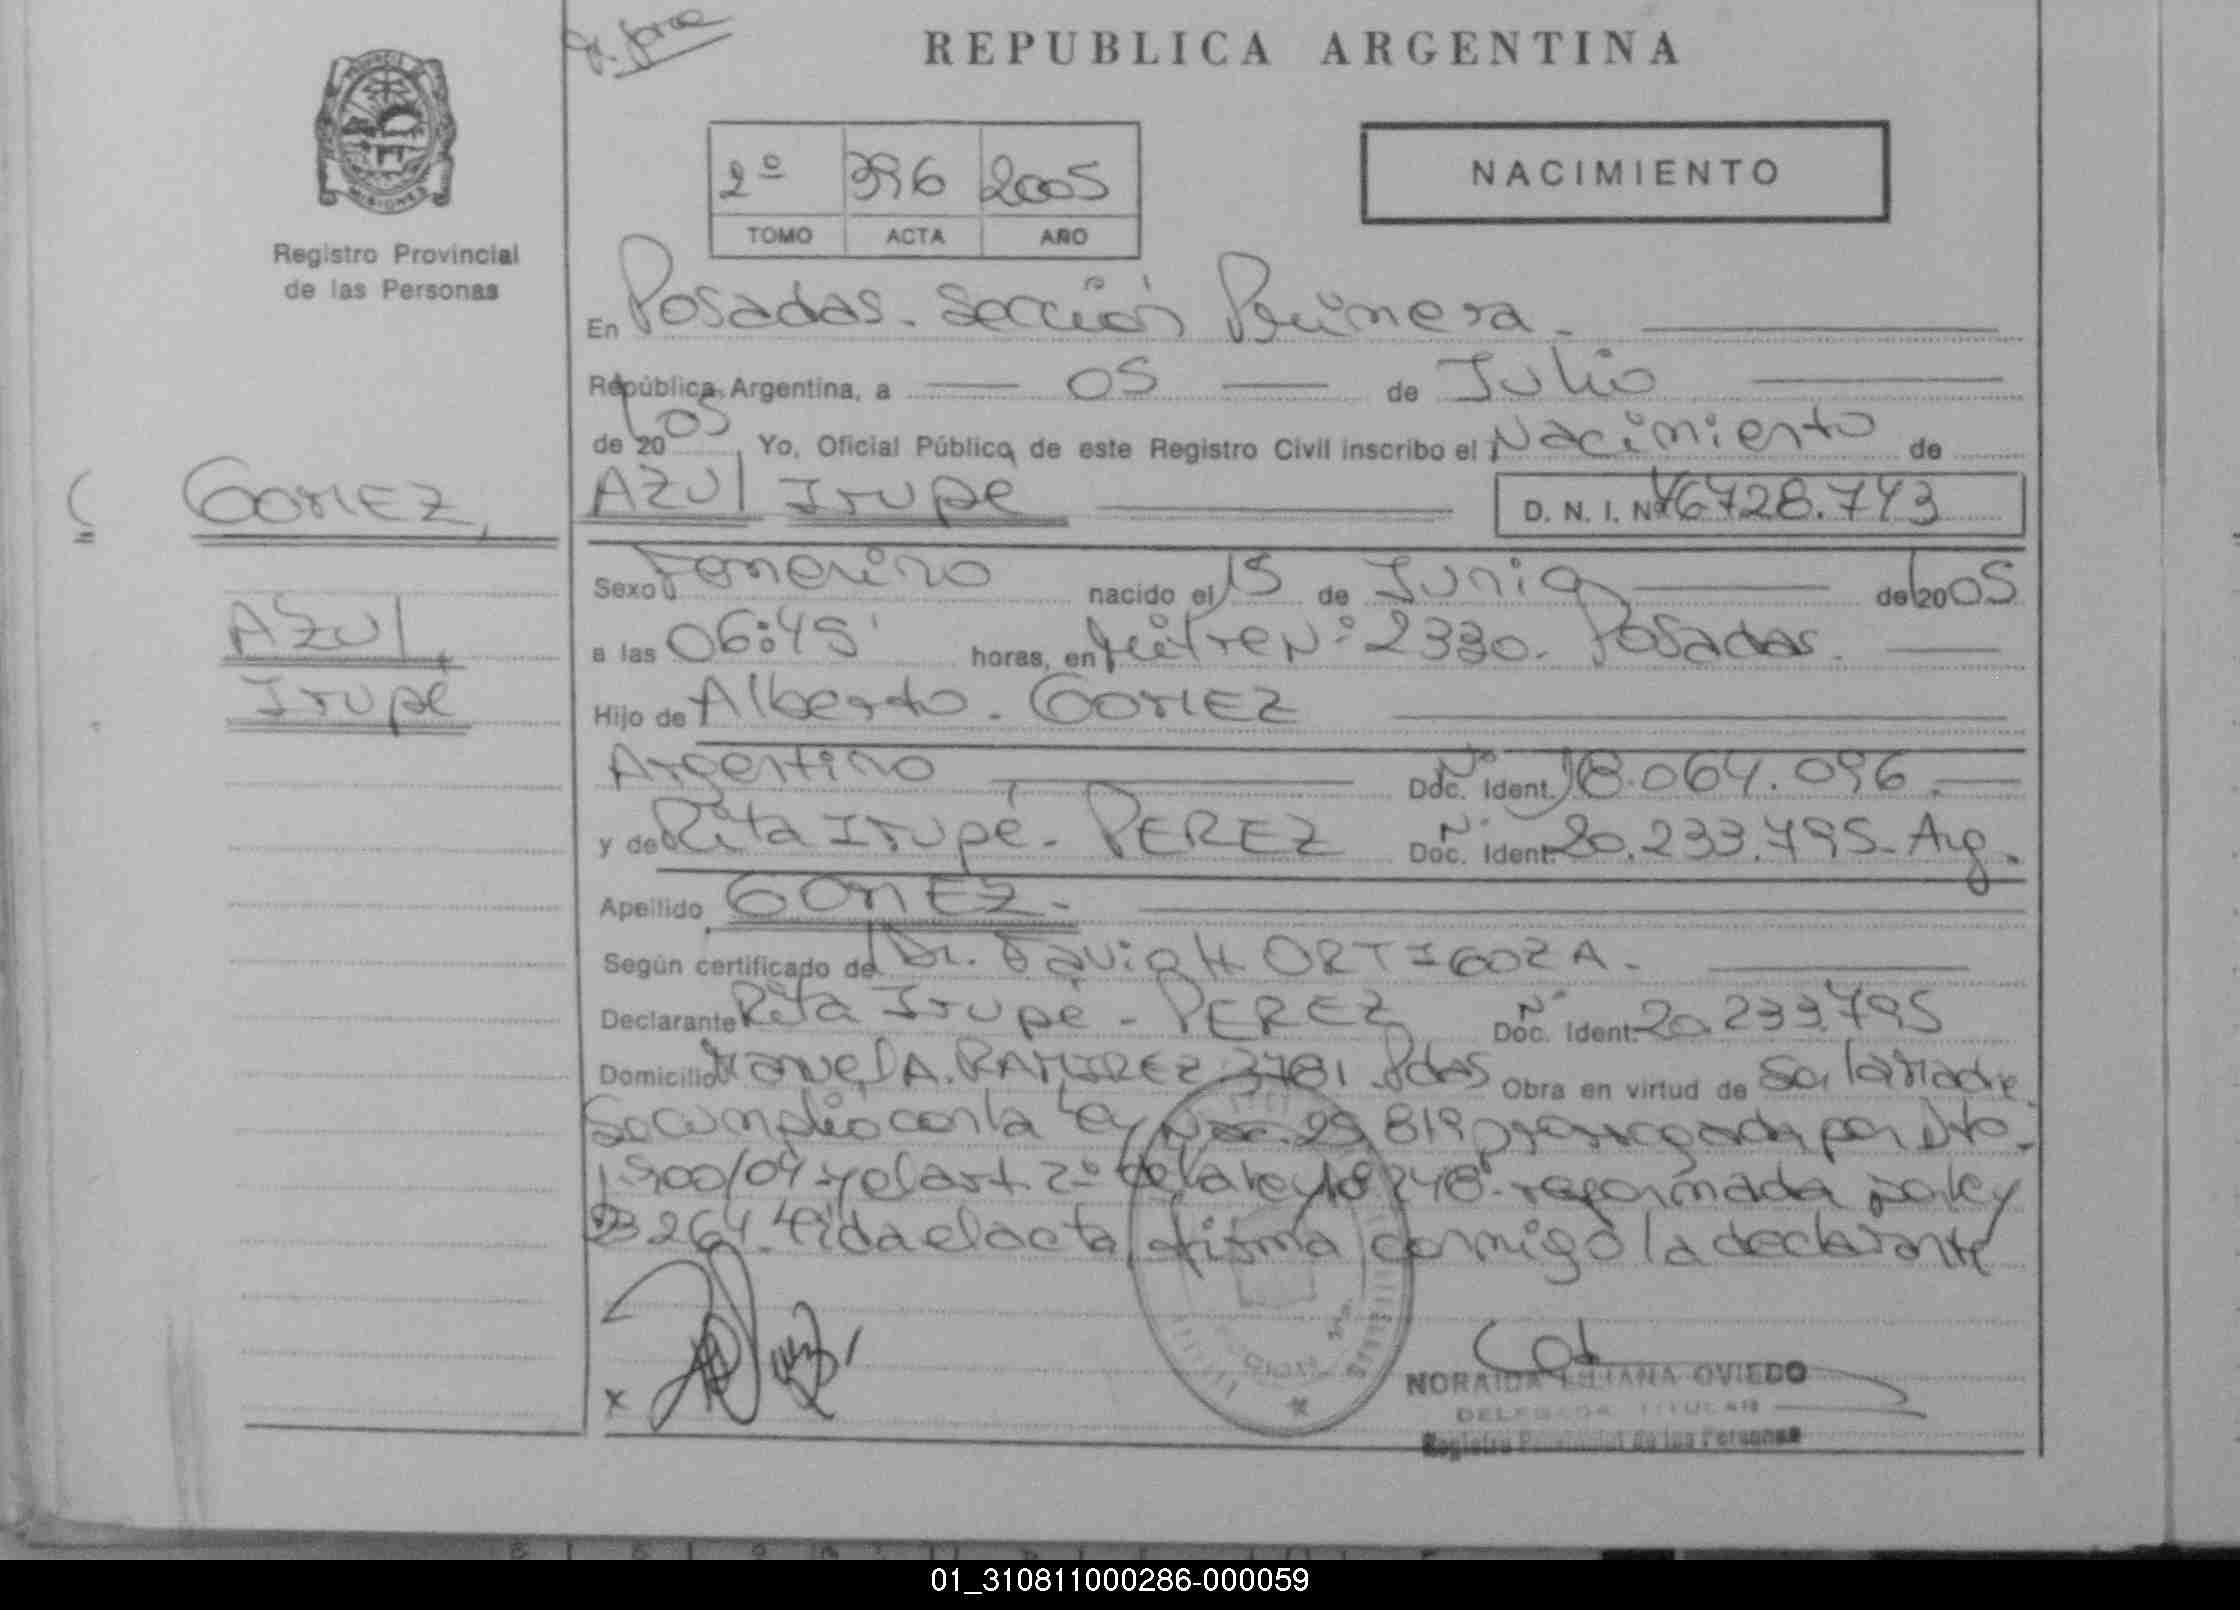 REPUBLICA ARGENTINA
PROVINCIA DE MISIONES
Registro Provincial
de las Personas
2º 396 2005
TOMO ACTA AÑO
NACIMIENTO
En Posadas. Sección Primera.
República Argentina, a 05 de Julio
de 2005 Yo, Oficial Público, de este Registro Civil inscribo el Nacimiento de
AZUL Irupe D. N. I. Nº 46728.743
GOMEZ,
AZUL
Irupé
Sexo Femenino nacido el 15 de Junio de 2005
a las 06:45' horas, en Mitre Nº 2330. Posadas.
Hijo de Alberto. GOMEZ
Argentino Nº Doc. Ident. 18.064.096.
y de Rita Irupé. PEREZ Nº Doc. Ident. 20.233.795. Arg.
Apellido GOMEZ.
Según certificado de Dr. H. ORTIGOZA.
Declarante Rita Irupé - PEREZ Nº Doc. Ident. 20.233.795
Domicilio Manuel A. RAMIREZ 3781 Pdas Obra en virtud de Ser la Madre.
Se cumplió con la Ley 25 819 prorrogada por Dto.
1.900/04 y el art 2º de la ley 18 248. reformada p. ley
23 264. Leída el acta firma conmigo la declarante
NORAIDA LILIANA OVIEDO
DELEGADA TITULAR
Registro Provincial de las Personas
01_310811000286-000059